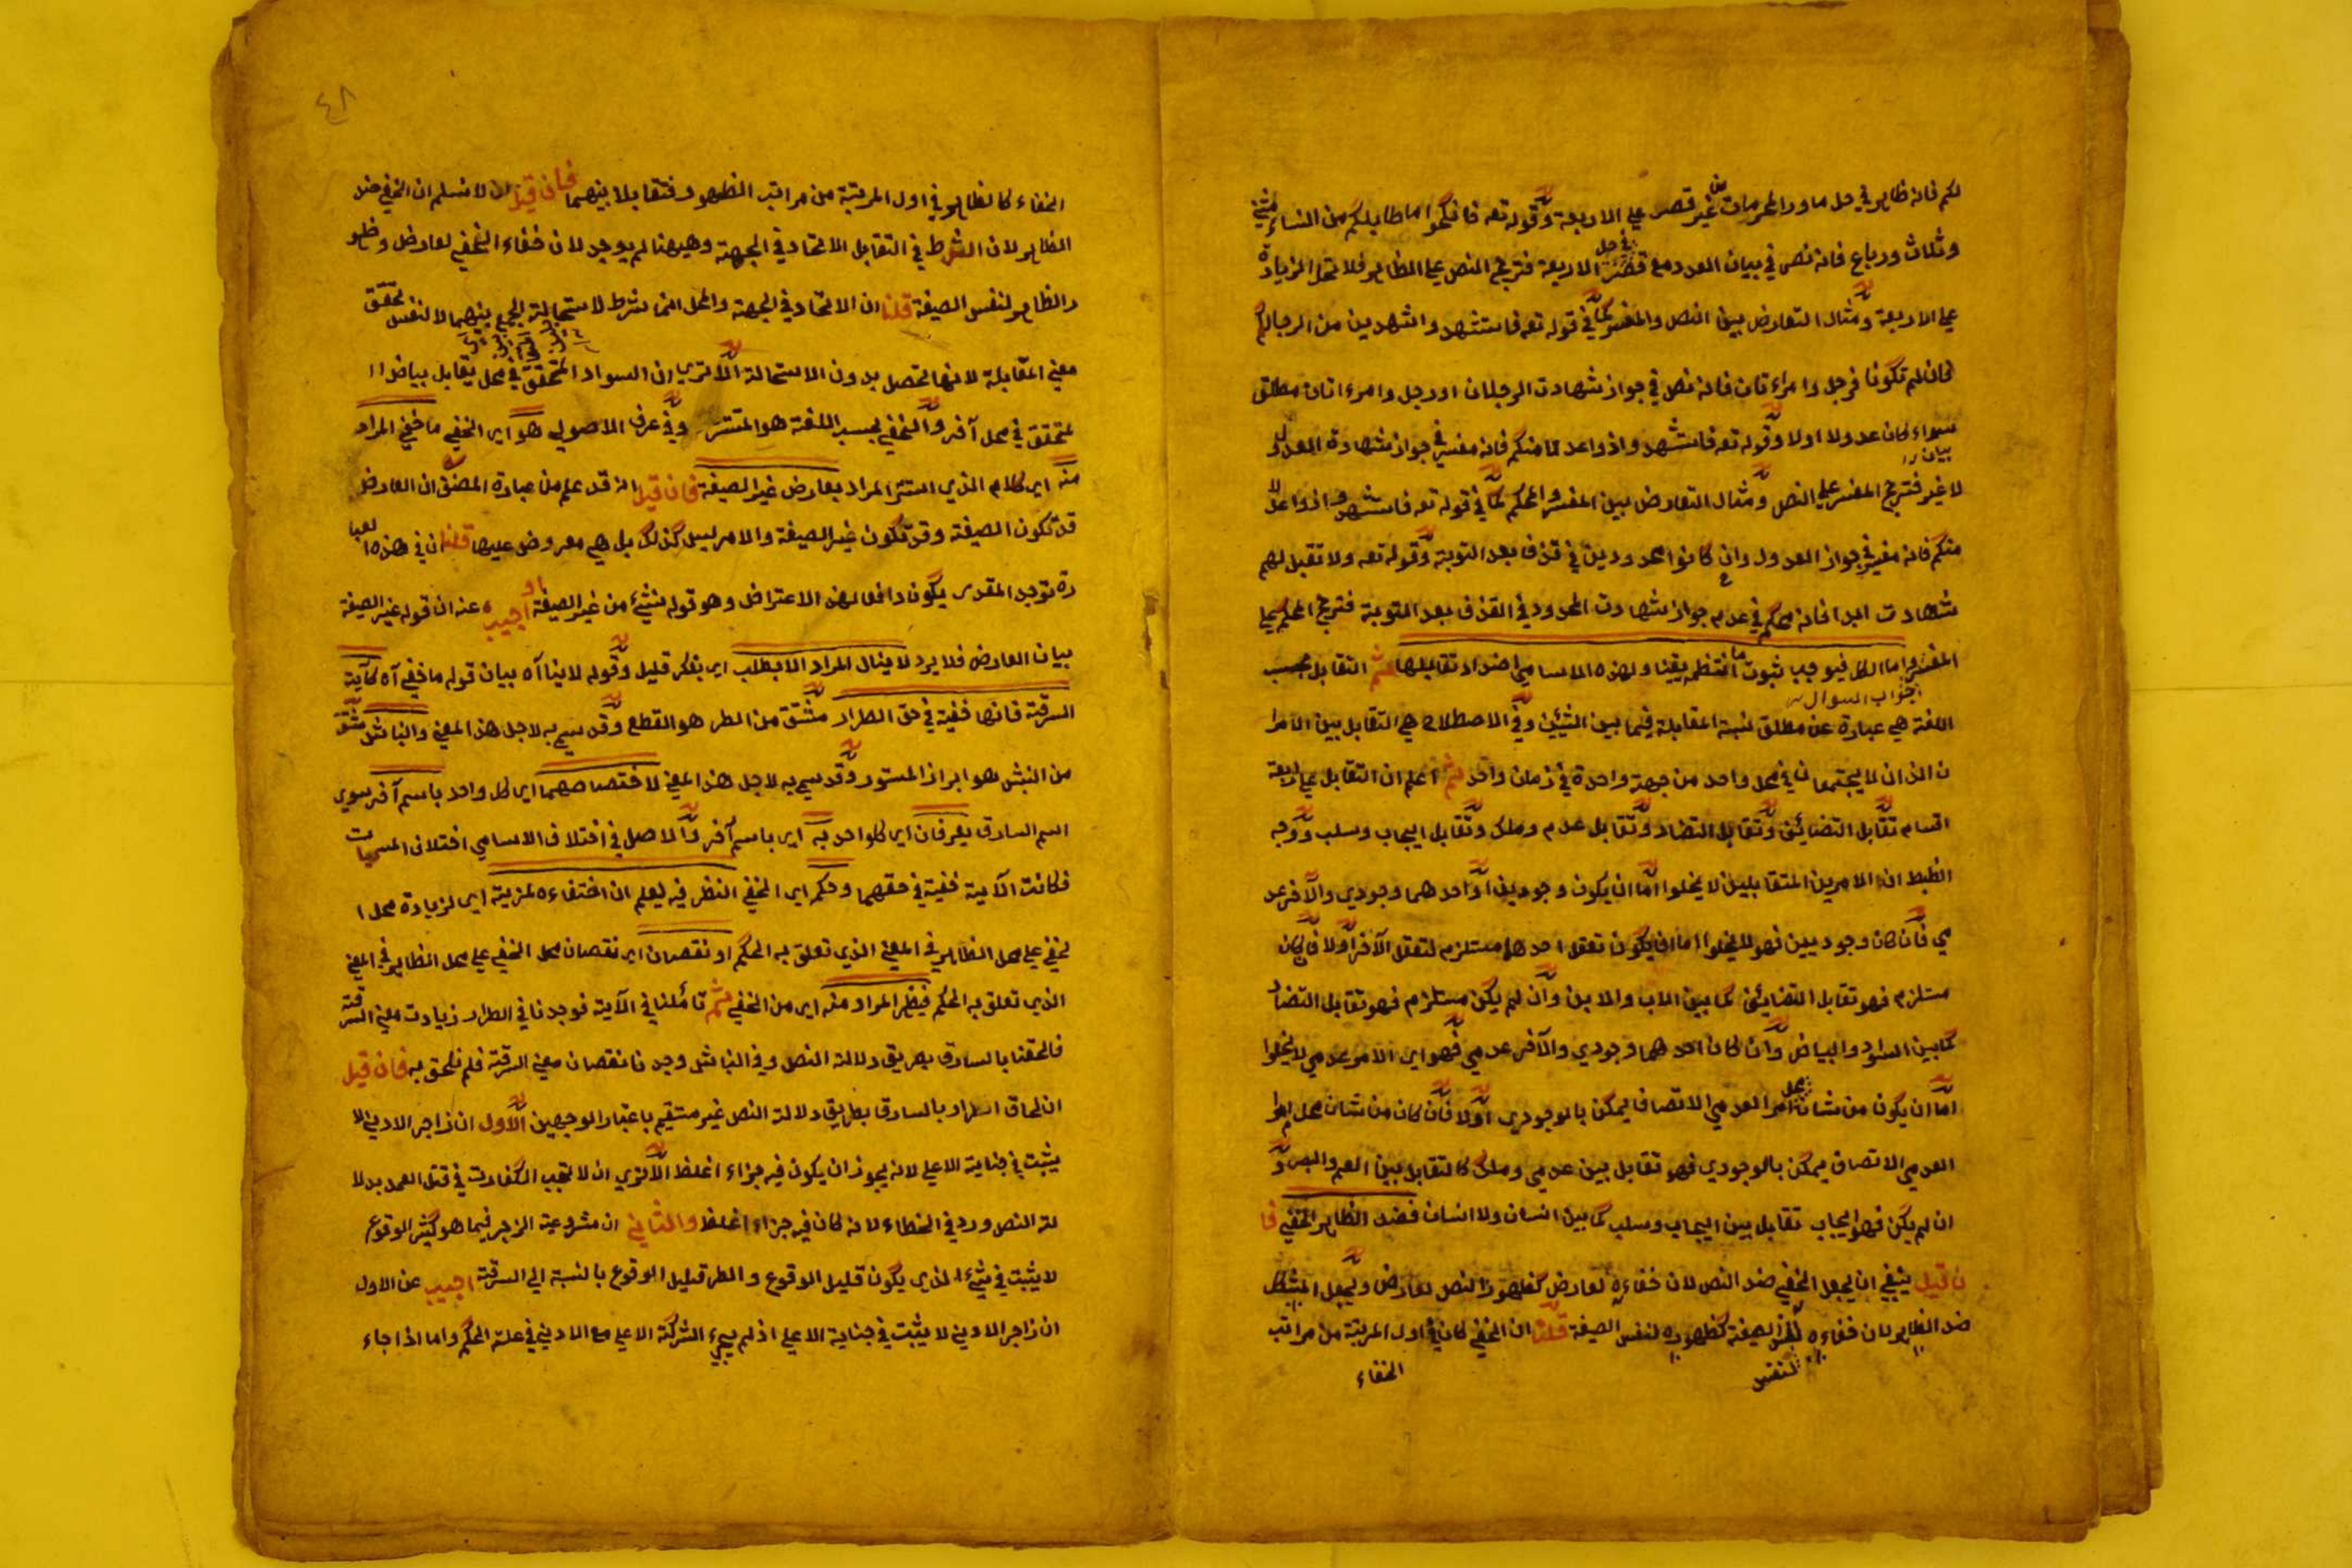 لكم فانه ظاهر في حل ماوراء المحرمات من غير قصر على الاربعة وقوله تعه فانكحوا ما طاب لكم من النساء مثنى
وثلاث ورباع فانه نص في بيان العدد مع قصر الاربعة فترجح النص على الظاهر فلا تحل الزيادة
على الاربعة ومثال التعارض بين النص والمفسر كما في قوله تعه فاستشهدوا شهدين من الرجالكم
فان لم تكونا فرجل وامراءتان فانه نص في جواز شهادت الرجلان او رجل وامرءاتان مطلق
سواء كان عدولا او لا وقوله تعه فاشهدوا ذوا عدلا منكم فانه مفسر في جواز شهادة العدول
لا غير فترجح المفسر على النص ومثال التعارض بين المفسر والمحكم كما في قوله تعه فاستشهدوا ذوا عدلا
منكم فانه مفسر في جواز العدول وان كانوا محدودين في قذف بعد التوبة وقوله تعه ولا تقبل لهم
شهادت ابدا فانه محكم في عدم جواز شهادت المحدود في القذف بعد التوبة فترجح المحكم على
المفسر واما الكل فيوجب ثبوت ما انتظم يقينا ولهذه الاسامي اضداد تقابلها ثم التقابل بحسب
جواب السوال
اللغة هي عبارة عن مطلق نسبة المقابلة فيما بين الشيئين وفي الاصطلاح هي التقابل بين الامرا
ن الذان لا يجتمعان في محل واحد من جهة واحدة في زمان واحد ثم اعلم ان التقابل على اربعة
اقسام تقابل التضائف وتقابل التضاد وتقابل عدم وملك وتقابل ايجاب وسلب ووجه
الضبط ان الامرين المتقابلين لا يخلوا اما ان يكون وجوديين او احدهما وجودي والآخر عد
مي فان كان وجوديين فهو لا يخلوا اما ان يكون تعقل احدهما مستلزم لتعقل الآخر او لا فان كان
مستلزم فهو تقابل التضائف كما بين الاب والابن وان لم يكن مستلزم فهو تقابل التضاد
كما بين السواد والبياض وان كان احدهما وجودي والآخر عدمي فهو اي الامر عدمي لا يخلوا
اما ان يكون من شان محل امر العدمي الاتصاف يمكن بالوجودي او لا فان كان من شان محل امر
العدمي الاتصاف يمكن بالوجودي فهو تقابل بين عدمي وملك كالتقابل بين العمي والبصر و
ان لم يكن فهو ايجاب تقابل بين ايجاب وسلب كما بين انسان ولا انسان فضد الظاهر الخفي فا
ن قيل ينبغي ان يجعل الخفي ضد النص لان خفاءه لعارض كظهور النص لعارض ويجعل المشكل
ضد الظاهر لان خفاءه لنفس الصيغة كظهوره لنفس الصيغة قلنا ان الخفي كان في اول المرتبة من مراتب
لنفس
الخفاء
٤٨
الخفاء كالظاهر في اول المرتبة من مراتب الظهور فتقابلا بينهما فان قيل لا نسلم ان الخفي ضد
الظاهر لان الشرط في التقابل الاتحاد في الجهة وههنا لم يوجد لان خفاء الخفي لعارض وظهو
ر الظاهر لنفس الصيغة قلنا ان الاتحاد في الجهة والمحل انما شرط لاستحالة الجمع بينهما لا لنفس تحقق
معني المقابلة لانها تحصل بدون الاستحالة الا تري ان السواد المتحقق في محل يقابل بياض ا
لمتحقق في محل آخر والخفي بحسب اللغة هو المستتر وفي عرف الاصولي هو اي الخفي ما خفي المراد
منه اي كلام الذي استتر المراد بعارض غير الصيغة فان قيل انه قد علم من عبارة المصنف ان العارض
قد تكون الصيغة وقد تكون غير الصيغة والامر ليس كذلك بل هي معروض عليها قلنا ان في هذه العبا
رة توجد المقدر يكون دافعا لهذا الاعتراض وهو قوله ينشئ من غير الصيغة او اجيب عنه ان قوله غير الصيغة
بيان العارض فلا يرد لا ينال المراد الا بطلب اي بفكر قليل وقوله لا ينا آه بيان قوله ما خفي آه كآية
السرقة فانها خفية في حق الطرار مشتق من الطر هو القطع وقد سمي به لاجل هذا المعني والنباش مشتق
من النبش هو ابراز المستور وقد سمي به لاجل هذا المعني لاختصاصهما اي كل واحد باسم آخر سوي
اسم السارق يعرفان اي كلواحد به اي باسم آخر والاصل في اختلاف الاسامي اختلاف المسميات
فكانت الآية خفية في حقهما وحكم اي الخفي النظر فيه ليعلم ان اختفاءه لمزية اي لزيادة محل ا
لخفي على محل الظاهر في المعني الذي تعلق به الحكم او نقصان اي نقصان محل الخفي على محل الظاهر في المعني
الذي تعلق به الحكم فيظهر المراد منه اي من الخفي ثم تأملنا في الآية فوجدنا في الطرار زيادت معني السرقة
فالحقنا بالسارق بطريق دلالة النص وفي النباش وجدنا نقصان معني السرقة فلم نلحق به فان قيل
ان لحاق الطرار بالسارق بطريق دلالة النص غير مستقيم باعتبار الوجهين الاول ان زاجر الادني لا
يثبت في جناية الاعلي لانه يجوز ان يكون فيه جزاء اغلظ الا تري ان لا تجب الكفارت في قتل العمد بدلا
لة النص ورد في الخطاء لانه كان فيه جزاء اغلظ والثاني ان مشروعية الزجر فيما هو كثير الوقوع
لا يثبت في شئ الذي يكون قليل الوقوع والطر قليل الوقوع بالنسبة الي السرقة اجيب عن الاول
ان زاجر الادني لا يثبت في جناية الاعلي اذ لم يجئ الشركة الاعلي مع الادني في علة الحكم واما اذا جاء